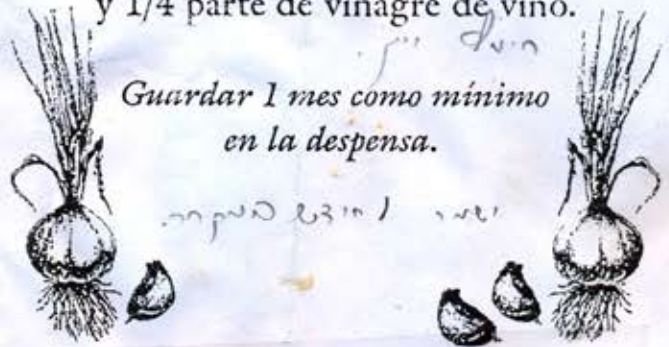 y 1/4 parte de vinagre de vino.
חומץ יין.
Guardar 1 mes como mínimo
en la despensa.
ישמר 1 חודש